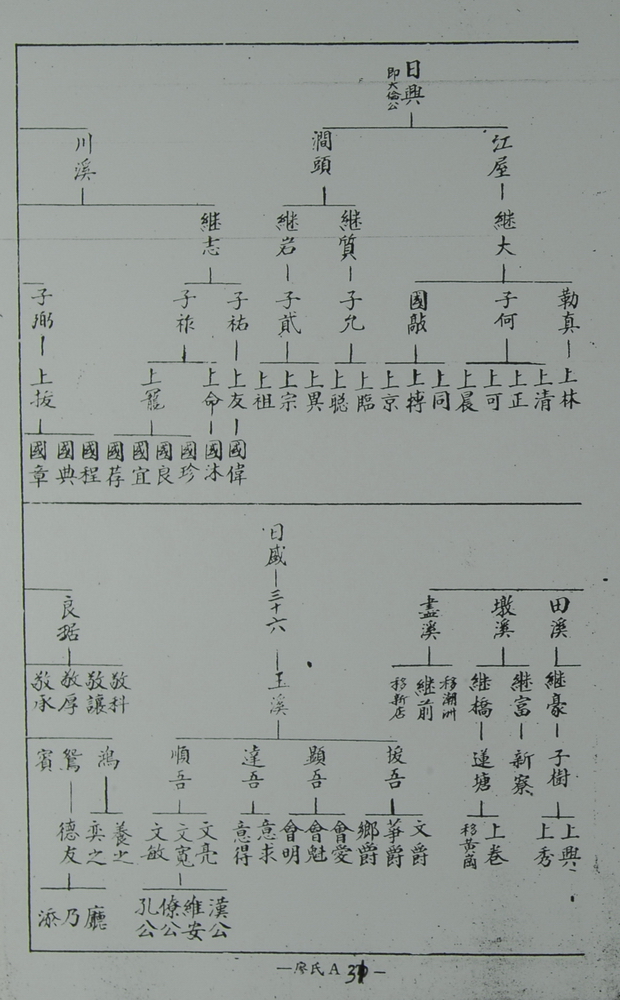 日興
即大倫公
江屋
澗頭
川溪
繼大
繼質
繼岩
繼志
勒真
子何
國敲
子允
子貳
子祐
子祚
子彬
上林
上清
上正
上可
上晨
上同
上京
上臨
上聪
上異
上宗
上祖
上友
上命
上寵
上拔
國偉
國沐
國珍
國良
國宜
國荐
國程
國典
國章
田溪
墩溪
盡溪
日盛
三十六
玉溪
良琚
繼豪
繼富
繼橋
移潮洲
繼前
移新店
敬科
敬讓
敬厚
敬承
子樹
新寮
蓮塘
拔吾
顯吾
達吾
順吾
鴻
鴛
賓
上興
上秀
上卷
移黃崗
文爵
華爵
鄉爵
會愛
會魁
會明
意求
意得
文亮
文寬
文敏
養之
奕之
德友
漢公
維安
僚公
孔公
廳
乃
添
—廖氏A 31—